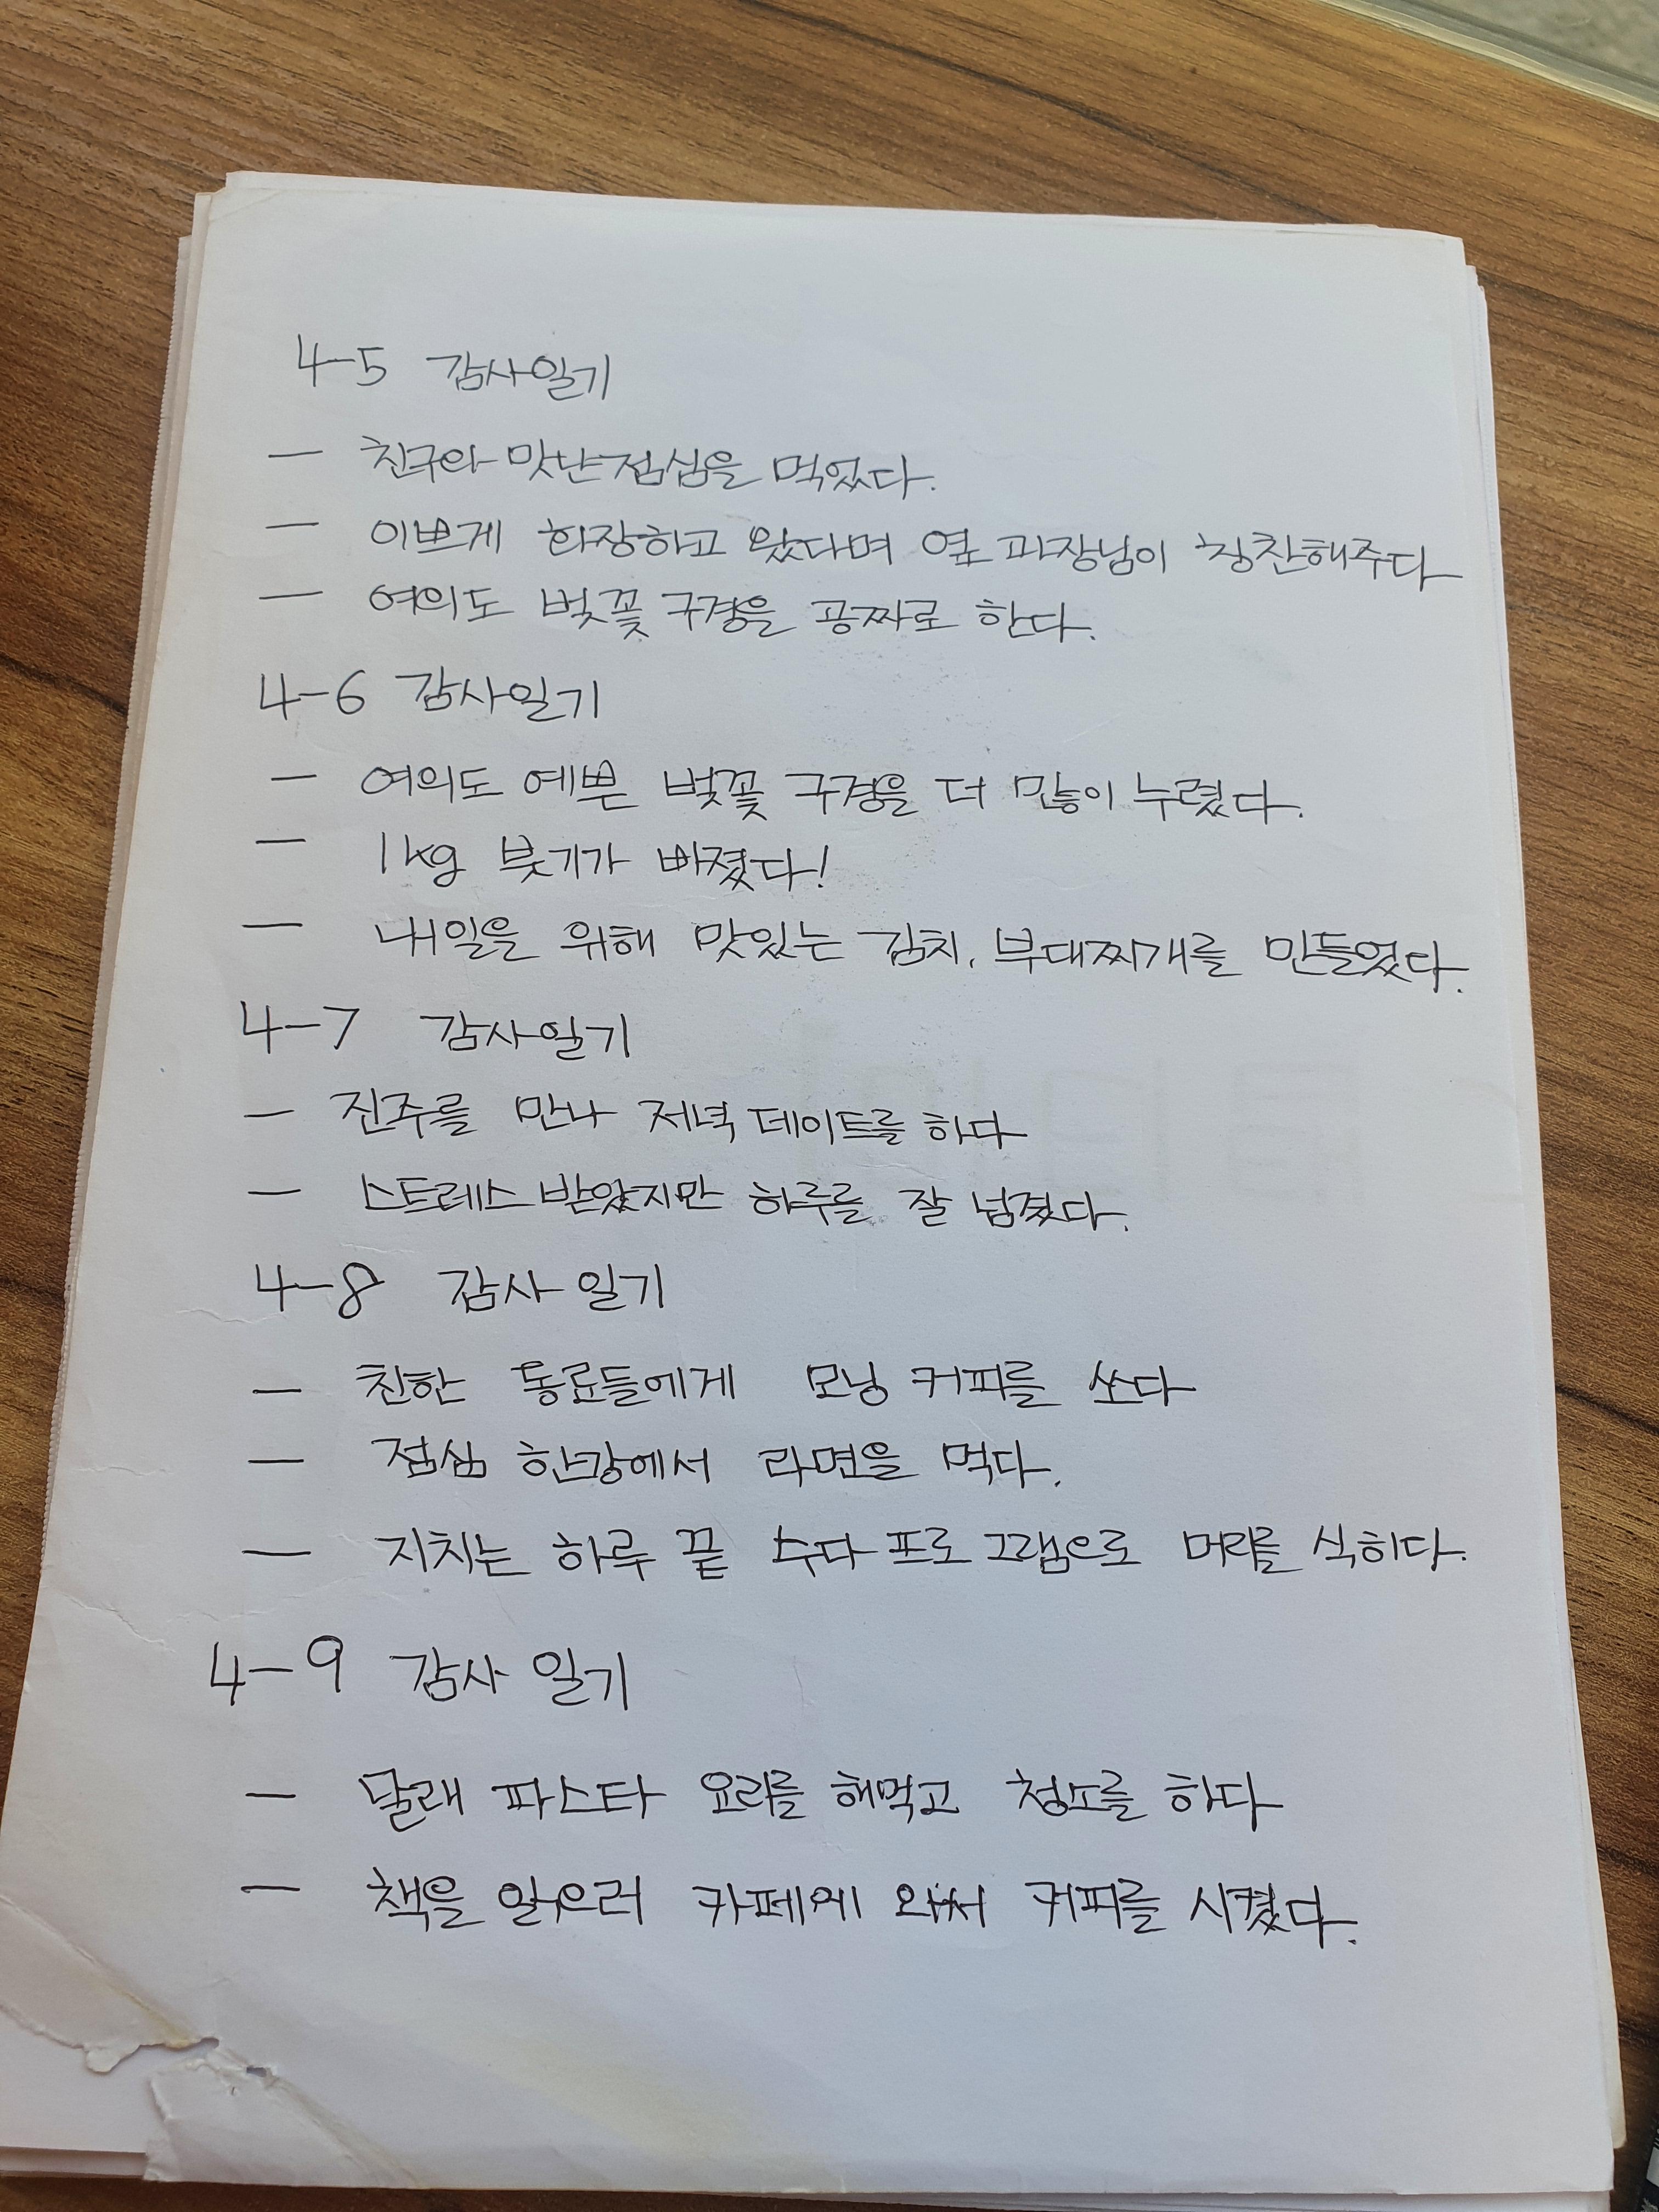 4-5 감사일기
- 친구와 맛난 점심을 먹었다.
- 이쁘게 화장하고 왔다며 옆 과장님이 칭찬해주다
- 여의도 벚꽃 구경을 공짜로 한다.
4-6 감사일기
- 여의도 예쁜 벚꽃 구경을 더 많이 누렸다.
- 1kg 붓기가 빠졌다!
- 내일을 위해 맛있는 김치, 부대찌개를 만들었다.
4-7 감사일기
- 진주를 만나 저녁 데이트를 하다
- 스트레스 받았지만 하루를 잘 넘겼다.
4-8 감사 일기
- 친한 동료들에게 모닝 커피를 쏘다
- 점심 한강에서 라면을 먹다.
- 지치는 하루 끝 수다 프로그램으로 머리를 식히다.
4-9 감사 일기
- 달래 파스타 요리를 해먹고 청소를 하다
- 책을 읽으러 카페에 와서 커피를 시켰다.